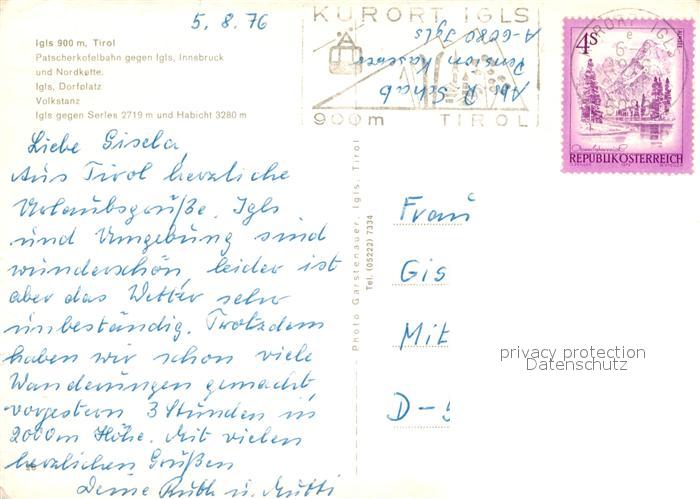 5. 8. 76
Igls 900 m, Tirol
Patscherkofelbahn gegen Igls, Innsbruck
und Nordkette.
Igls, Dorfplatz
Volkstanz
Igls gegen Serles 2719 m und Habicht 3280 m
Liebe Gisela,
Aus Tirol herzliche
Urlaubsgrüße. Igls
und Umgebung sind
wunderschön, leider ist
aber das Wetter sehr
unbeständig. Trotzdem
haben wir schon viele
Wanderungen gemacht,
vorgestern 3 Stunden in
2000m Höhe. Mit vielen
herzlichen Grüßen
Deine Ruth u. Mutti
Photo Garstenauer, Igls, Tirol
Tel. (05222) 7334
KURORT IGLS
900m TIROL
Abs. R. Schab
Pension Kaserer
A-6080 Igls
KURORT IGLS
4S
REPUBLIK ÖSTERREICH
Frau
Gis
Mit
D-5
privacy protection
Datenschutz